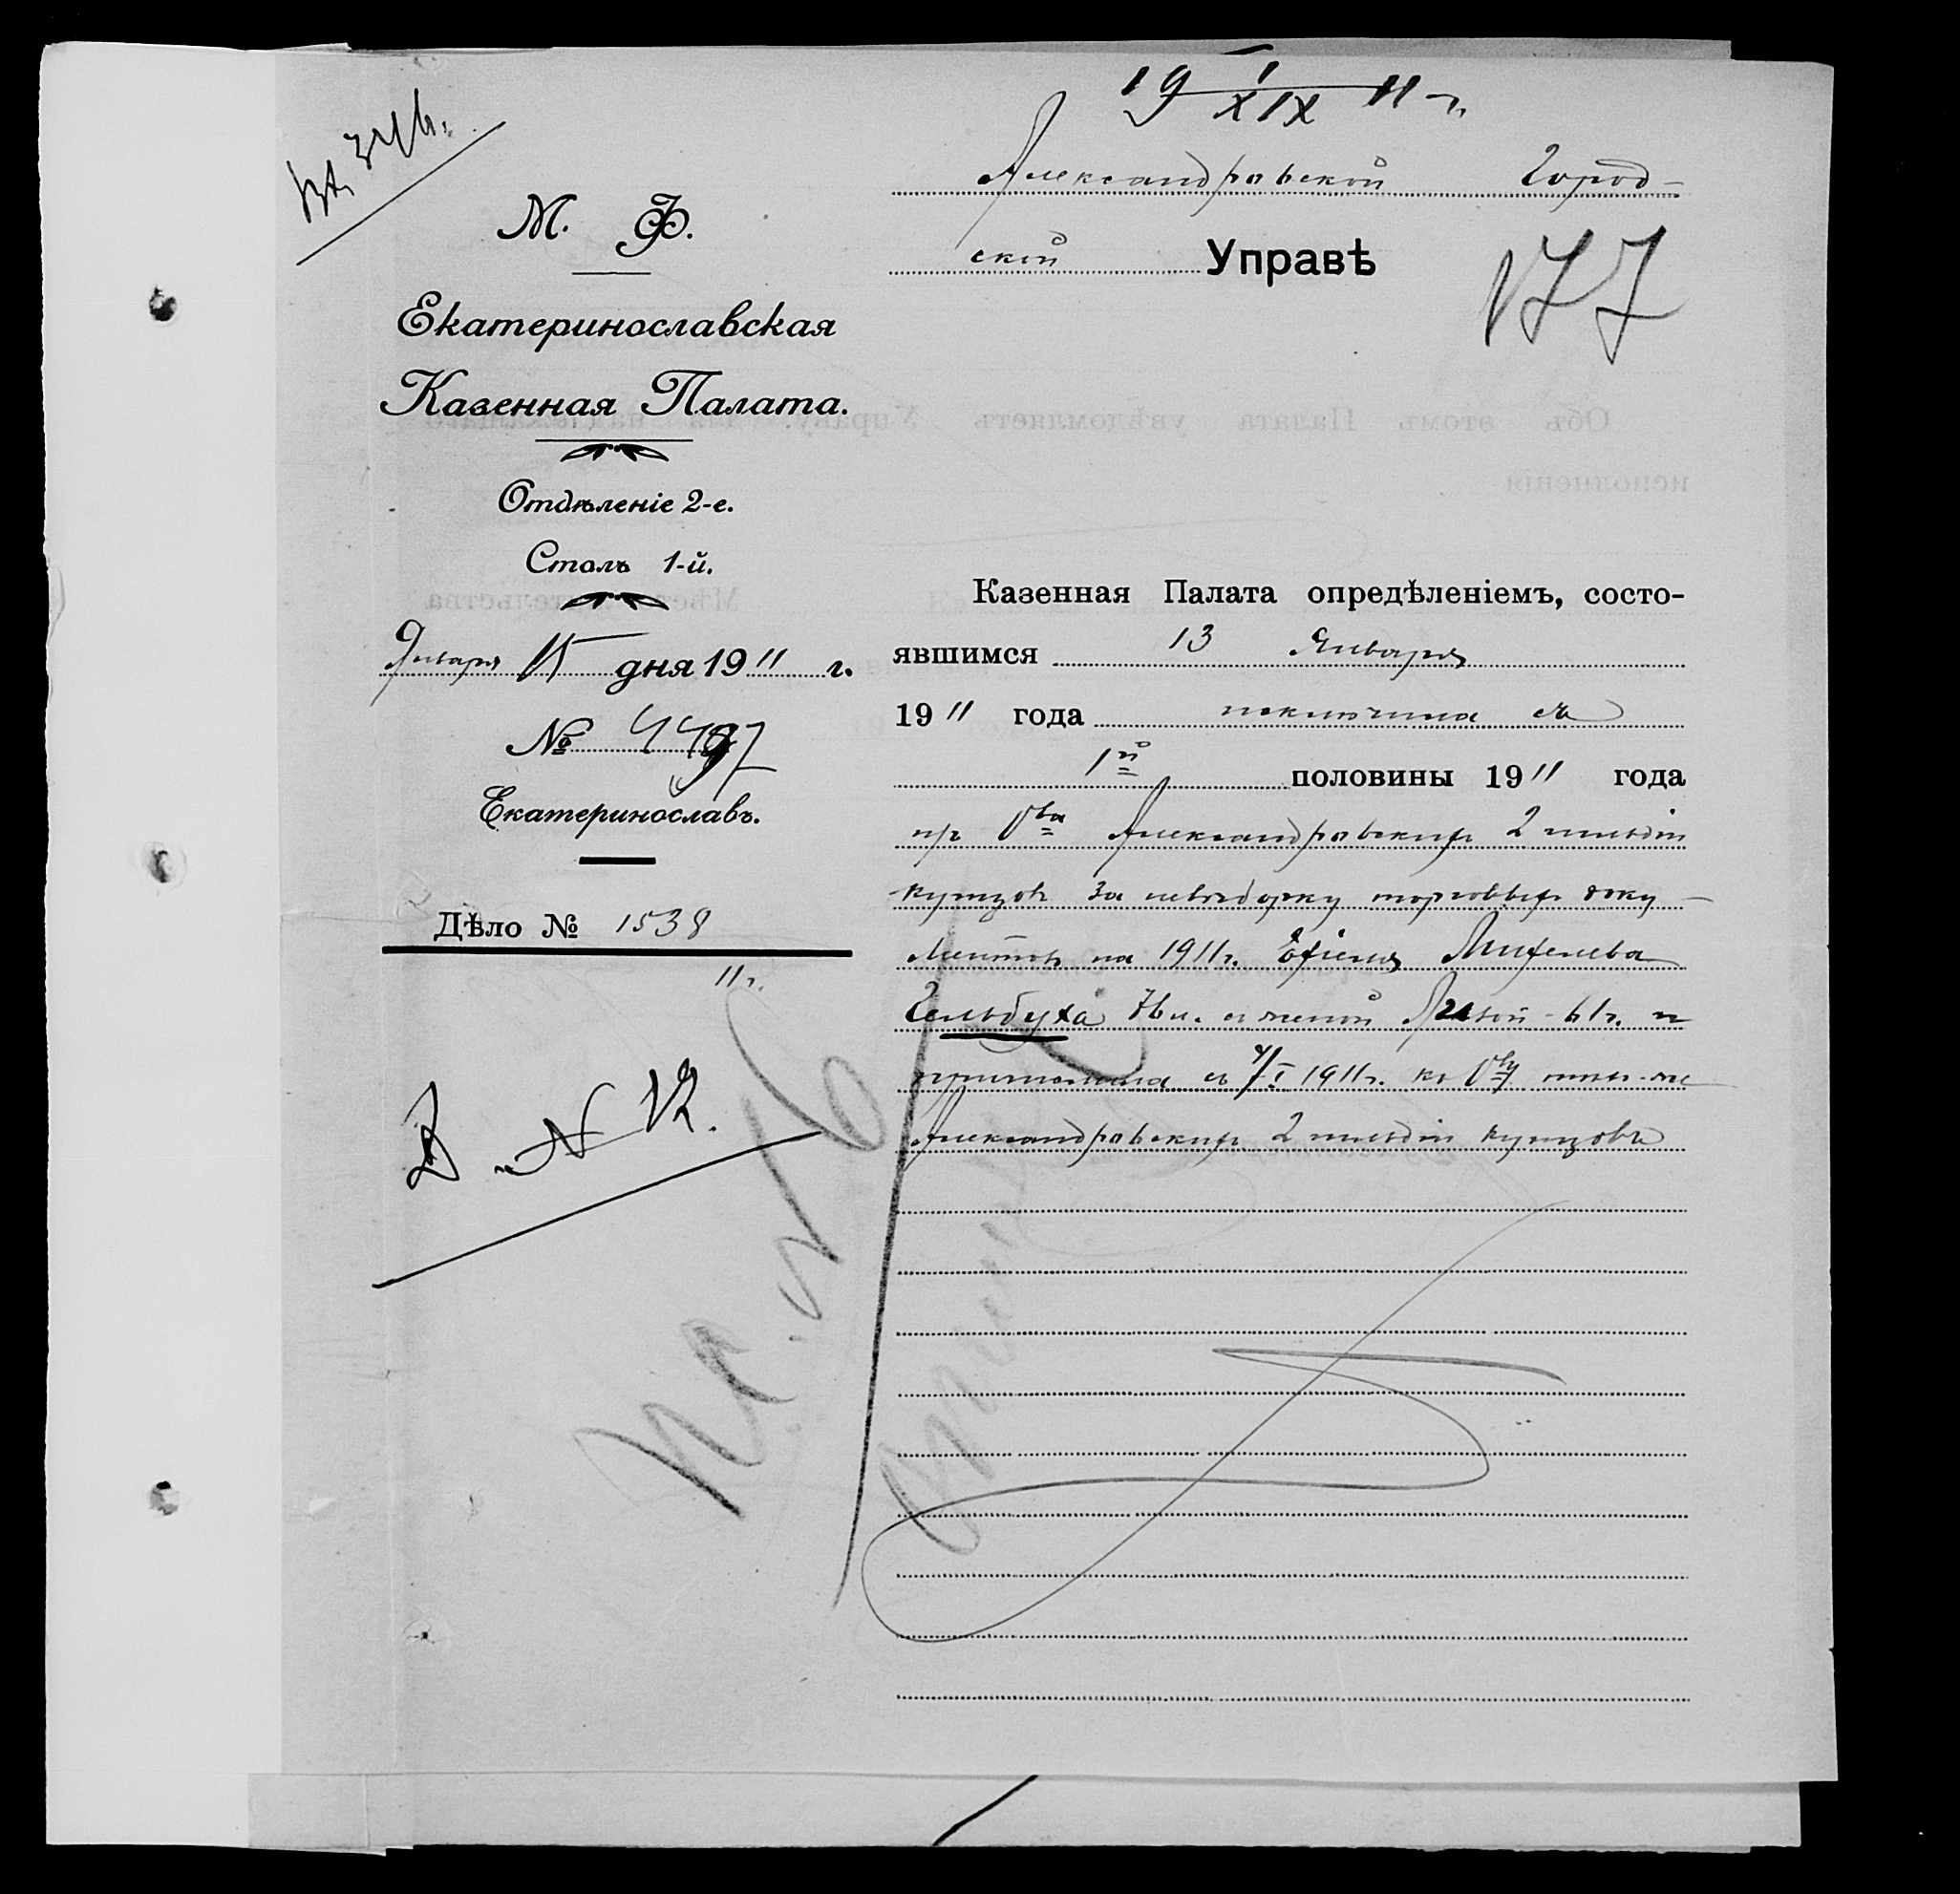 19 I/XIX 11 г.
Александровской Город-
ской Управѣ
177
М. Ф.
Екатеринославская
Казенная Палата.
Отдѣленіе 2-е.
Столъ 1-й.
Января 15 дня 19 11 г.
№ 4497
Екатеринославъ.
Дѣло № 1538
11 г.
В. N 12.
Казенная Палата опредѣленіемъ, состо-
явшимся 13 Января
19 11 года исключила съ
1й половины 19 11 года
изъ О-ва Александровскихъ 2 гильдіи
купцовъ за невыборку торговыхъ доку-
ментовъ на 1911 г. Ефіеля Михелева
Гельбуха 76 л. съ женой 61 г. и
причислила съ 1911 г. къ О-ву тѣхъ-же
Александровскихъ 2 гильдіи купцовъ